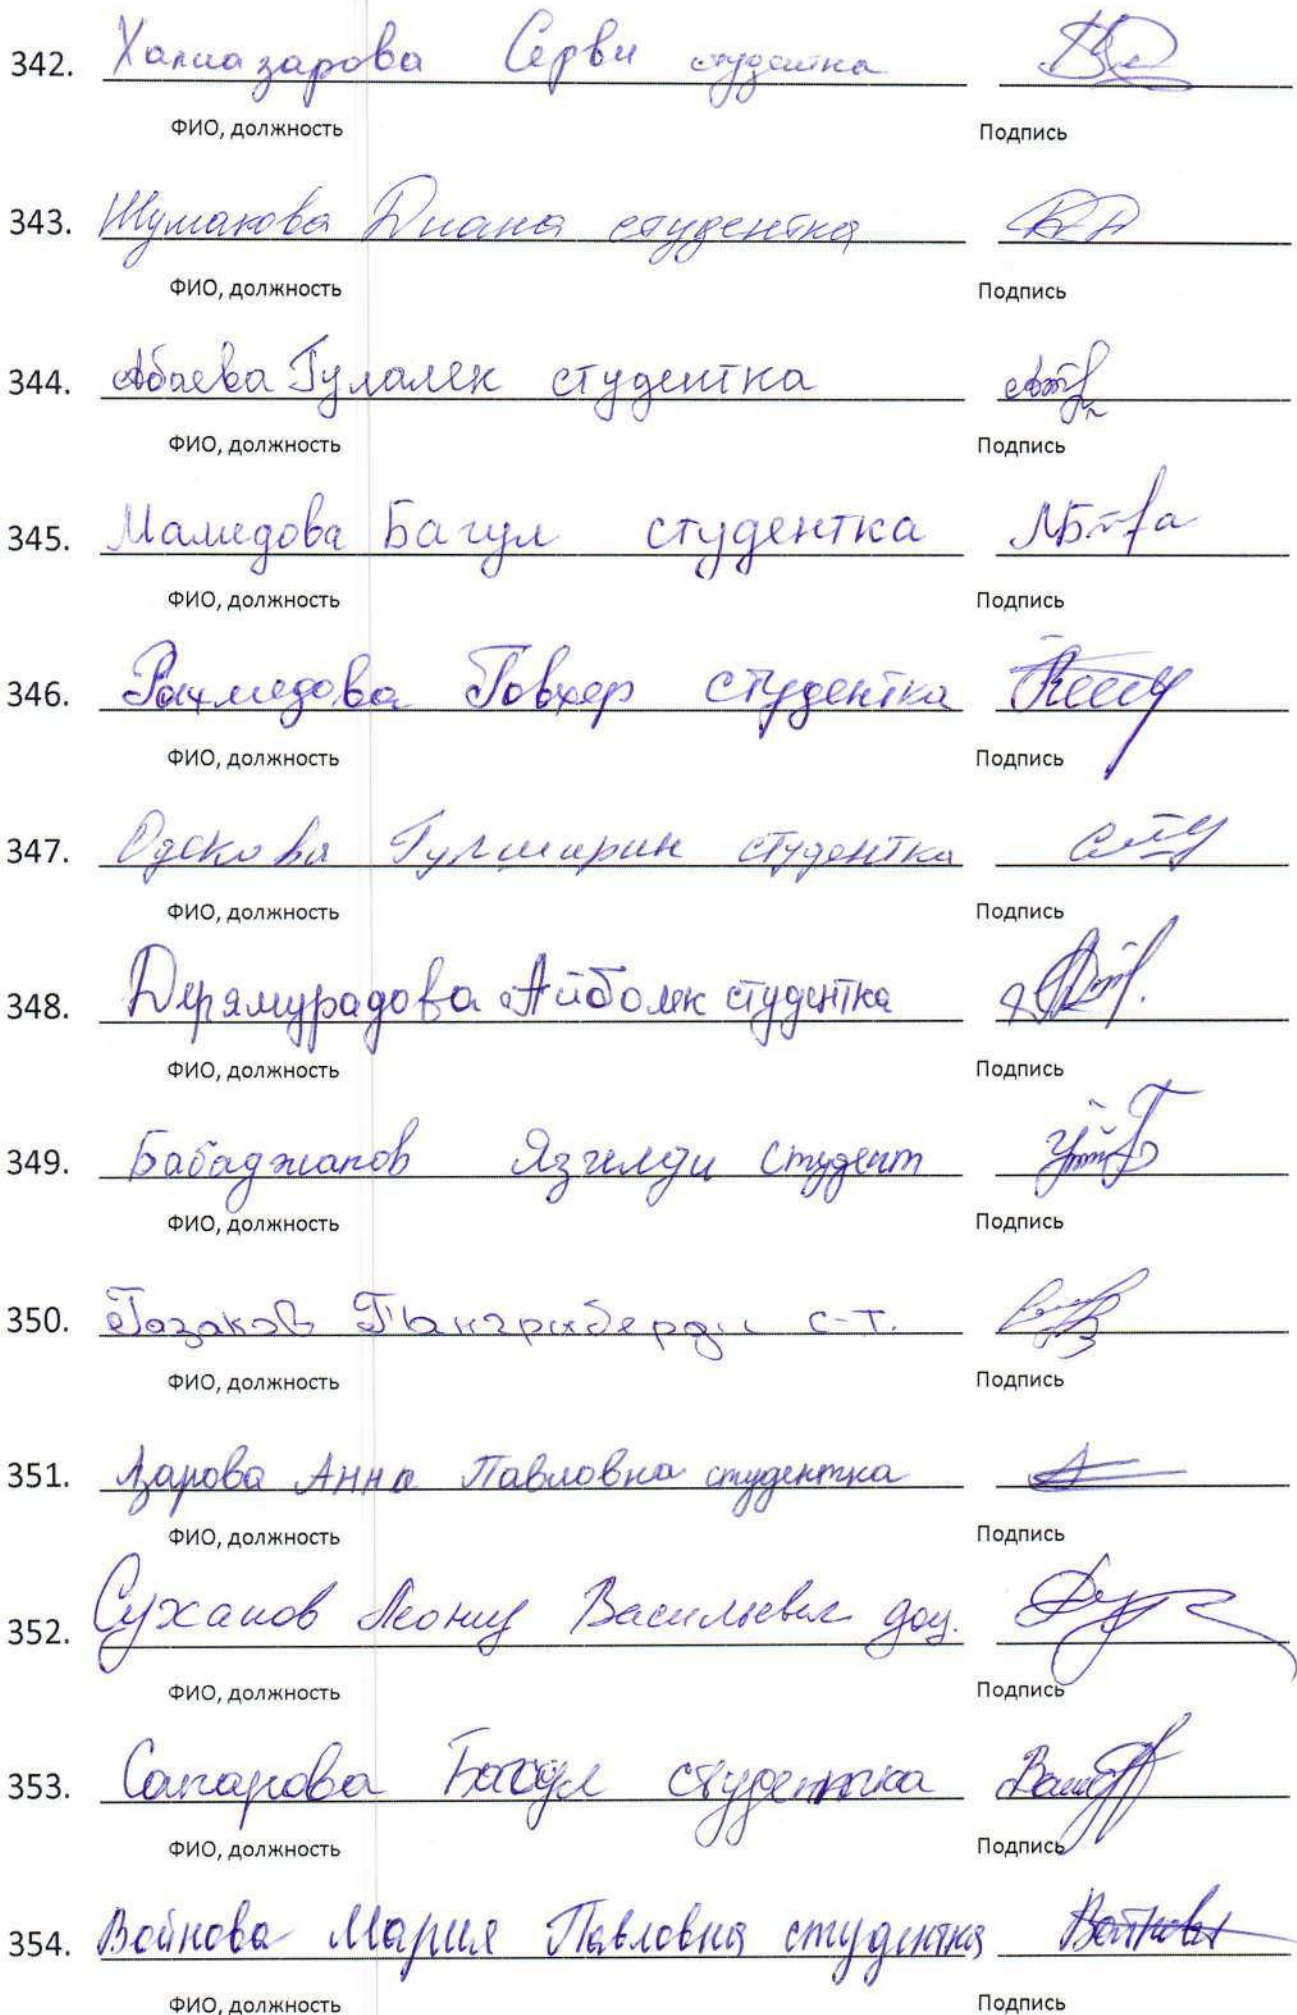 342. Халназарова Серви студентка
ФИО, должность Подпись
343. Шумакова Диана студентка
ФИО, должность Подпись
344. Абаева Гулалек студентка
ФИО, должность Подпись
345. Мамедова Багул студентка
ФИО, должность Подпись
346. Рахмедова Говхер студентка
ФИО, должность Подпись
347. Одекова Гулширин студентка
ФИО, должность Подпись
348. Дерямурадова Айболек студентка
ФИО, должность Подпись
349. Бабаджанов Язгелди студент
ФИО, должность Подпись
350. Газаков Тангриберди с-т.
ФИО, должность Подпись
351. Азарова Анна Павловна студентка
ФИО, должность Подпись
352. Суханов Леонид Васильевич доц.
ФИО, должность Подпись
353. Сапарова студентка
ФИО, должность Подпись
354. Войнова Мария Павловна студентка Войнова
ФИО, должность Подпись